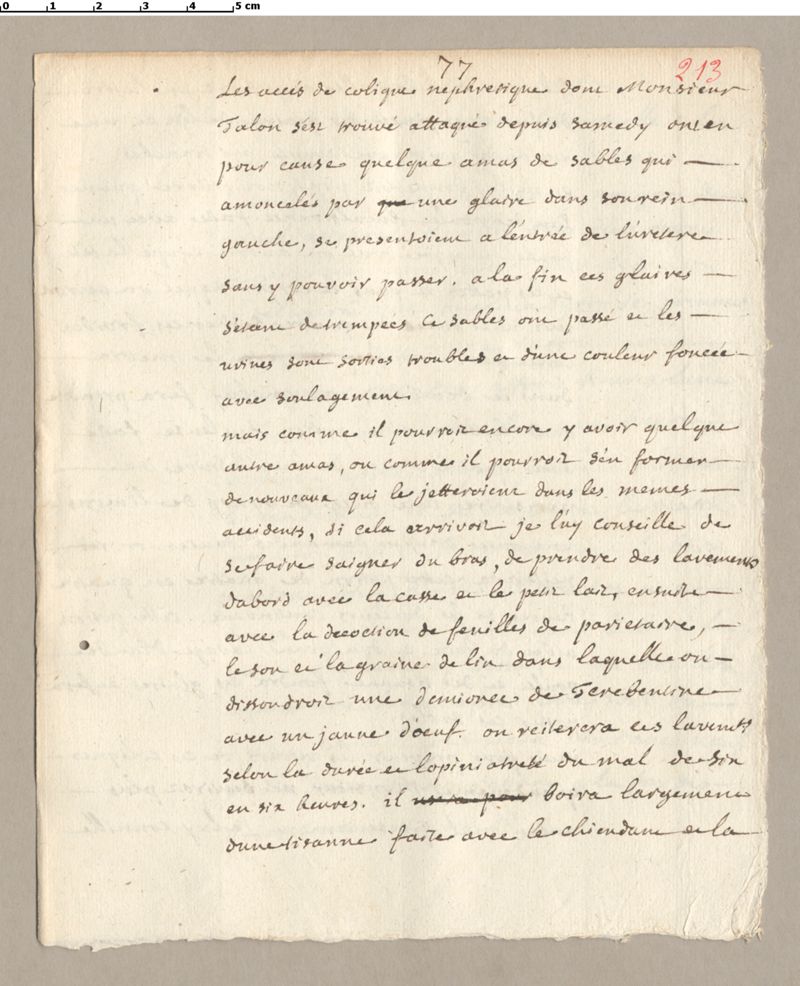 0 1 2 3 4 5 cm
77
213
Les accés de colique nephretique dont Monsieur
Talon s'est trouvé attaqué depuis samedy ont eu
pour cause quelque amas de sables qui
amoncelés par que une glaire dans son rein
gauche, se presentoient a l'entrée de l'uretere
sans y pouvoir passer. a la fin ces glaires
s'étant detrempées ce sables ont passé et les
urines sont sorties troubles et d'une couleur foncée
avec soulagement.
mais comme il pourroit encore y avoir quelque
autre amas, ou comme il pourroit s'en former
de nouveaux qui le jetteroient dans les memes
accidents, si cela arrivoit je luy conseille de
se faire saigner du bras, de prendre des lavements
d'abord avec la casse et le petit lait, ensuite
avec la decoction de feuilles de parietaire,
le son et la graine de lin dans laquelle on
dissoudroit une demionce de Terebentine
avec un jaune d'oeuf. on reiterera ces lavemts
selon la durée et l'opiniatreté du mal de six
en six heures. il usera pour boira largement
d'une tisanne faite avec le chiendant et la